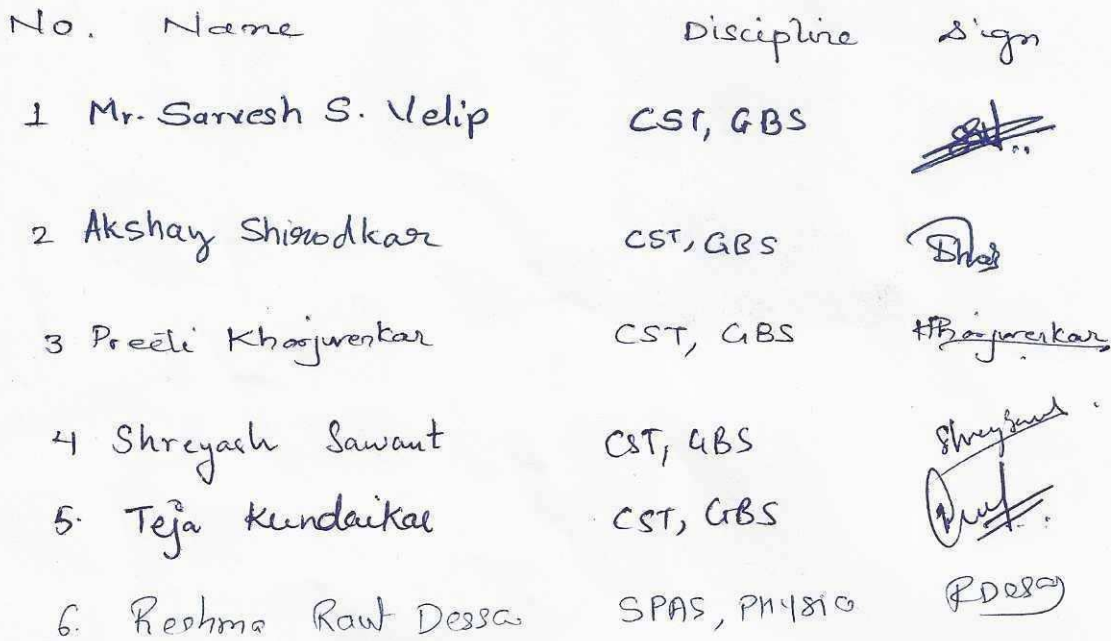 No. Name Discipline Sign
1 Mr. Sarvesh S. Velip CST, GBS
2 Akshay Shirodkar CST, GBS
3 Preeti Kharjuvenkar CST, GBS
4 Shreyash Sawant CST, GBS
5. Teja Kundaikar CST, GBS
6. Reshma Raut Dessa SPAS, PHYSIO RDesa